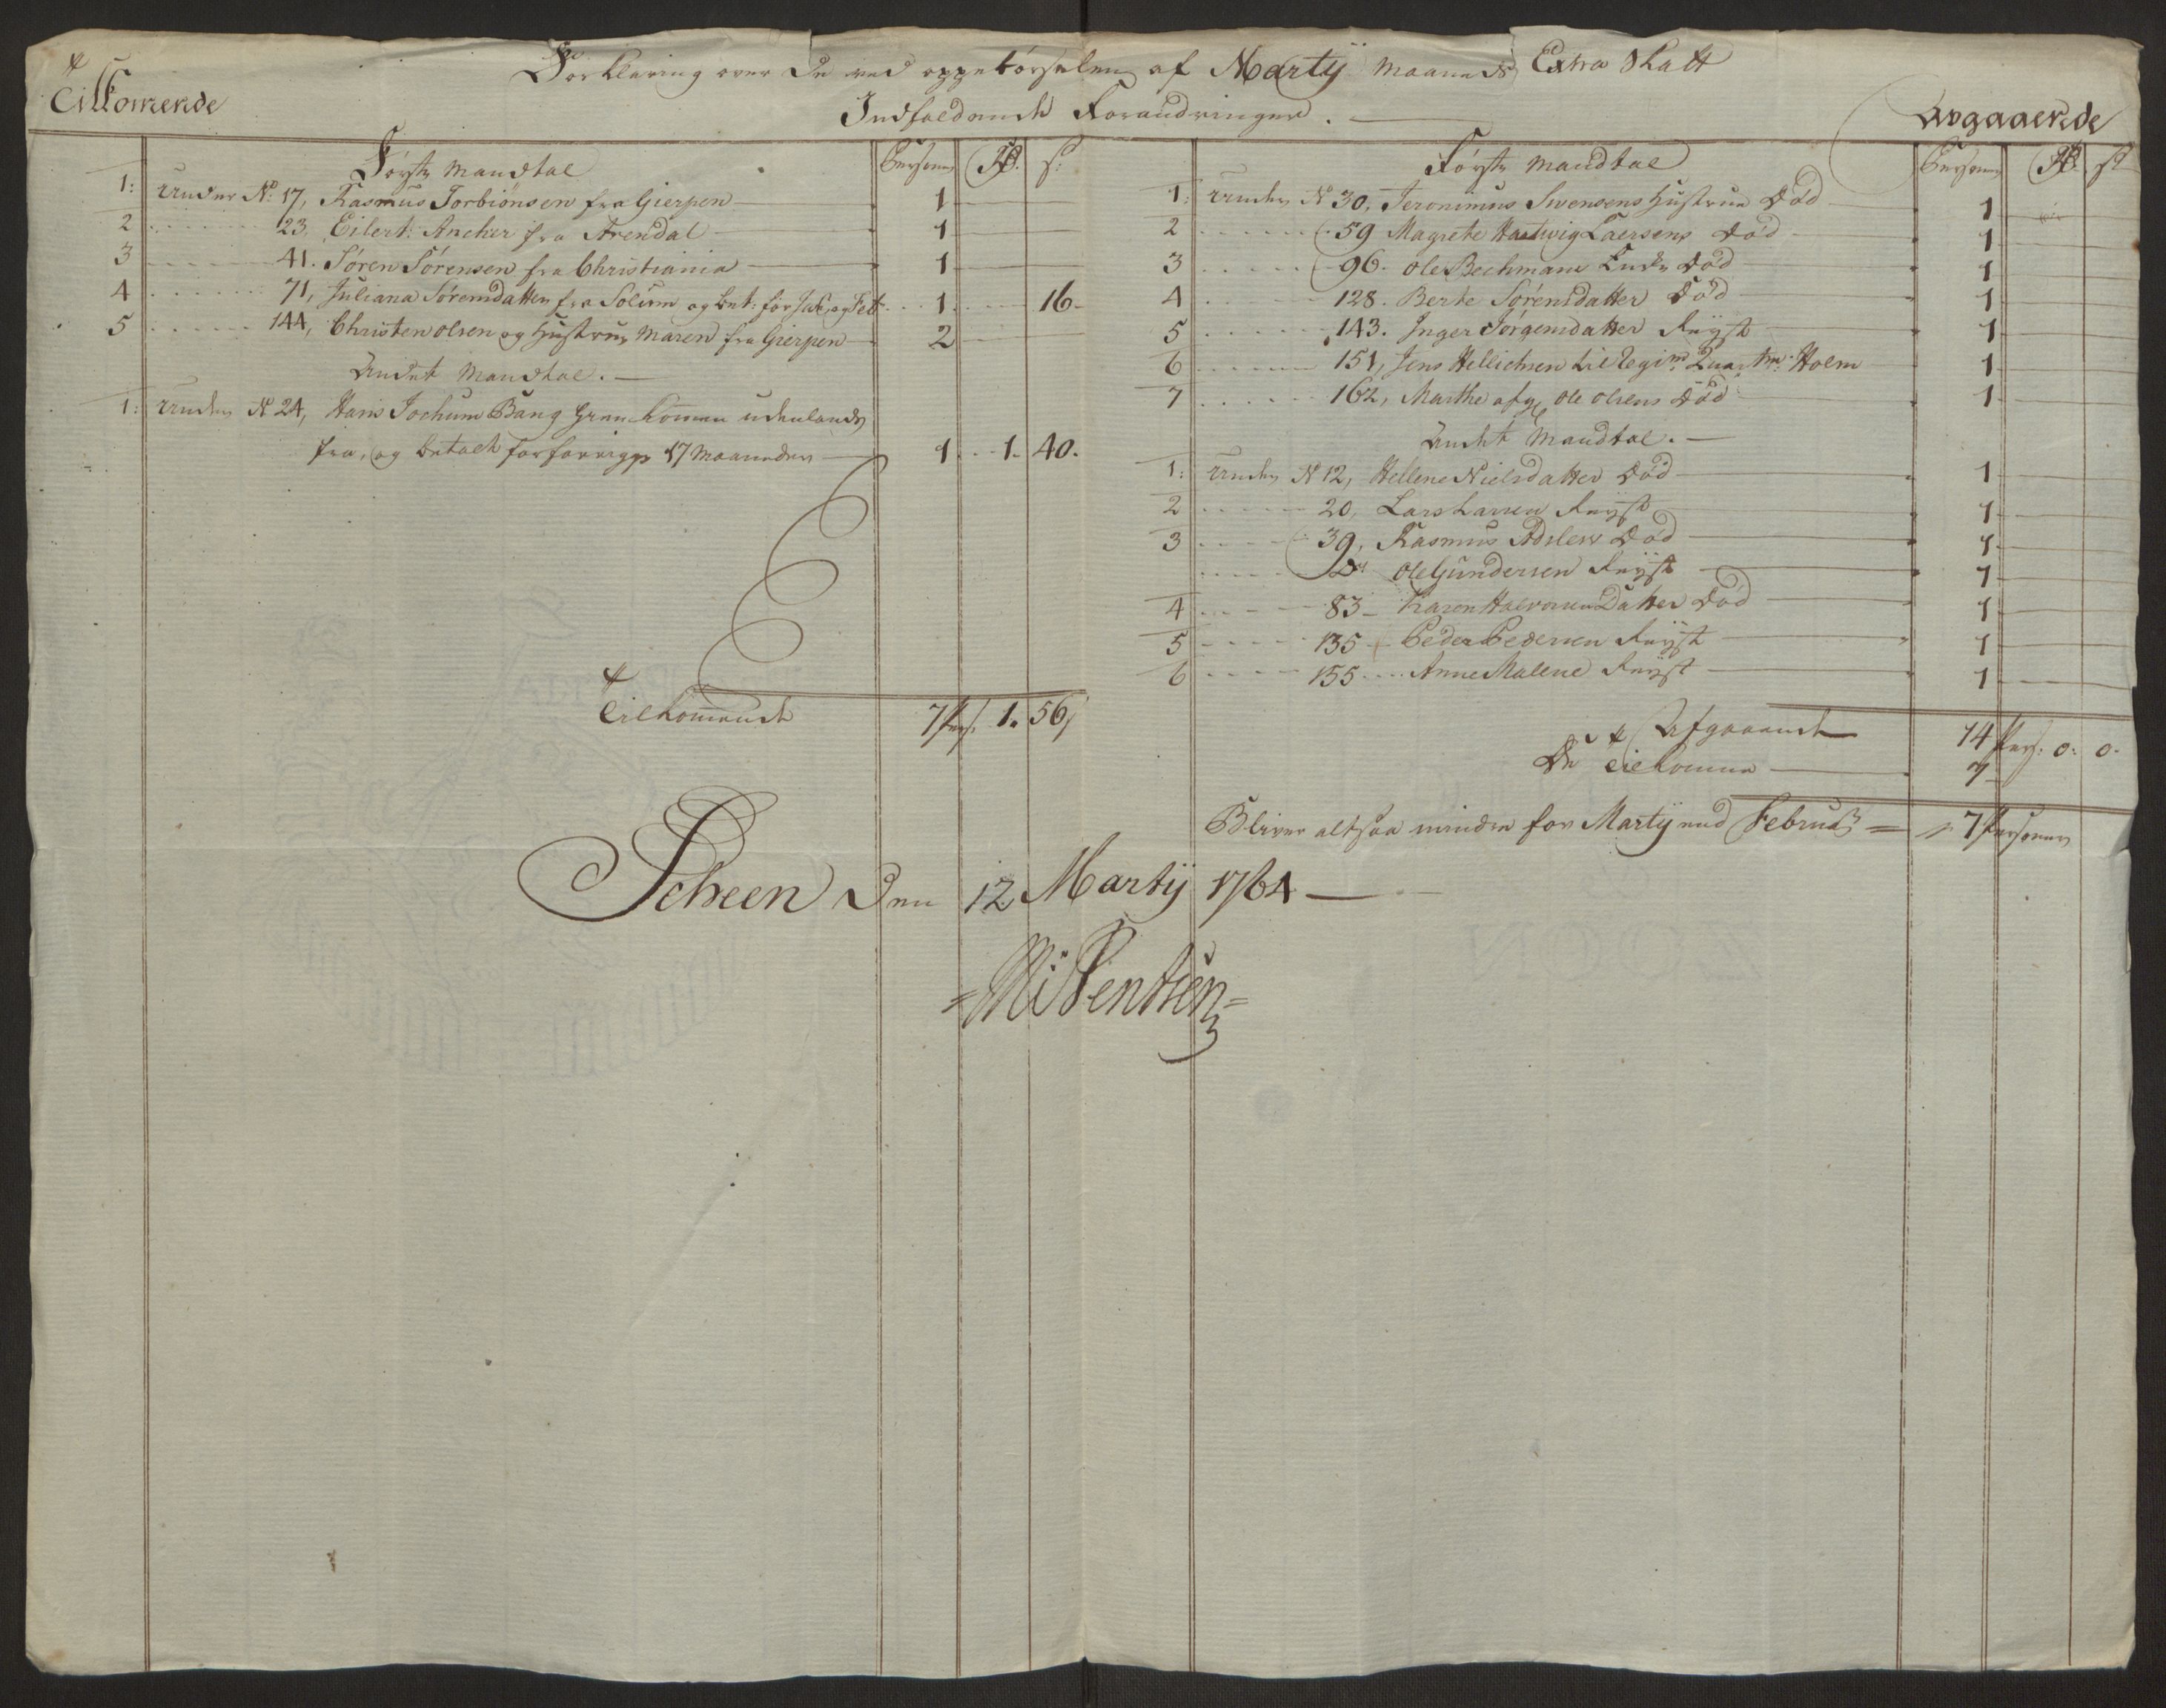 Forklaring over De ved oppebørselen af Martij Maaneds Extra Skatt
Indfaldende Forandringer.
Tilkomende
Første Mandtal Persone Rd. s:
1: Under No. 17, Rasmus Torbiønsen fra Gierpen 1
2 23. Eilert Ancher fra Arendal 1
3 41. Søren Sørensen fra Christiania 1
4 71, Juliana Sørensdatter fra Solum og bet: for Jan: og Feb 1 16
5 144, Christen Olsen og Hustrue Maren fra Gierpen 2
Andet Mandtal.
1: Under No 24, Hans Jochum Bang hiemkommen udenlands
fra, og betalt for forrige 17 Maaneder 1 1. 40.
Tilkommende 7 Pers. 1. 56
Avgaaende
Første Mandtal Persone Rd. s:
1: Under No 30, Jeronimus Svensens Hustrue Død 1
2 59 Magrete Hartvig Laersens Død 1
3 96. Ole Bechmans Død 1
4 128. Berte Sørensdatter Død 1
5 143. Inger Jørgensdatter Reyst 1
6 151, Jens Hellichsen til Regim. Quartm. Holm 1
7 162, Marthe afg. Ole Olsens Død 1
Andet Mandtal.
1: Under No 12, Hellene Nielsdatter Død 1
2 20, Lars Larsen Reyst 1
3 39, Rasmus Adslew Død 1
Do Ole Gundersen Reyst 1
4 83 Karen HalvorsenDatter Død 1
5 135 Peder Pedersen Reyst 1
6 155 Anne Malene Reyst 1
Afgaaende 14 Pers: 0: 0.
De Tilkomne 7
Bliver altsaa mindre for Martij end Februarj 7 Personer
Scheen Den 12 Martij 1764